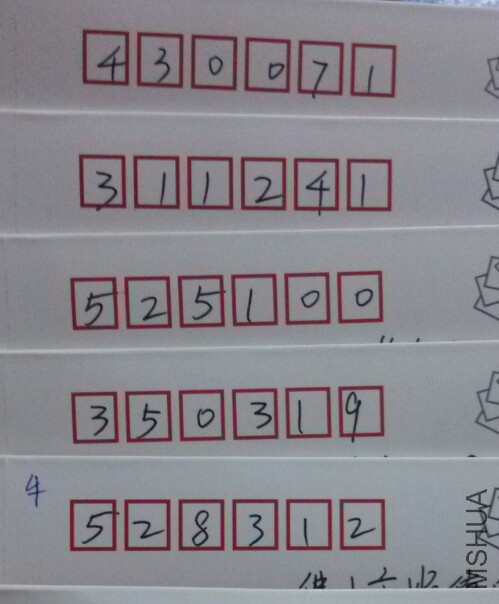 430071
311241
525100
350319
4
528312
MSHUA